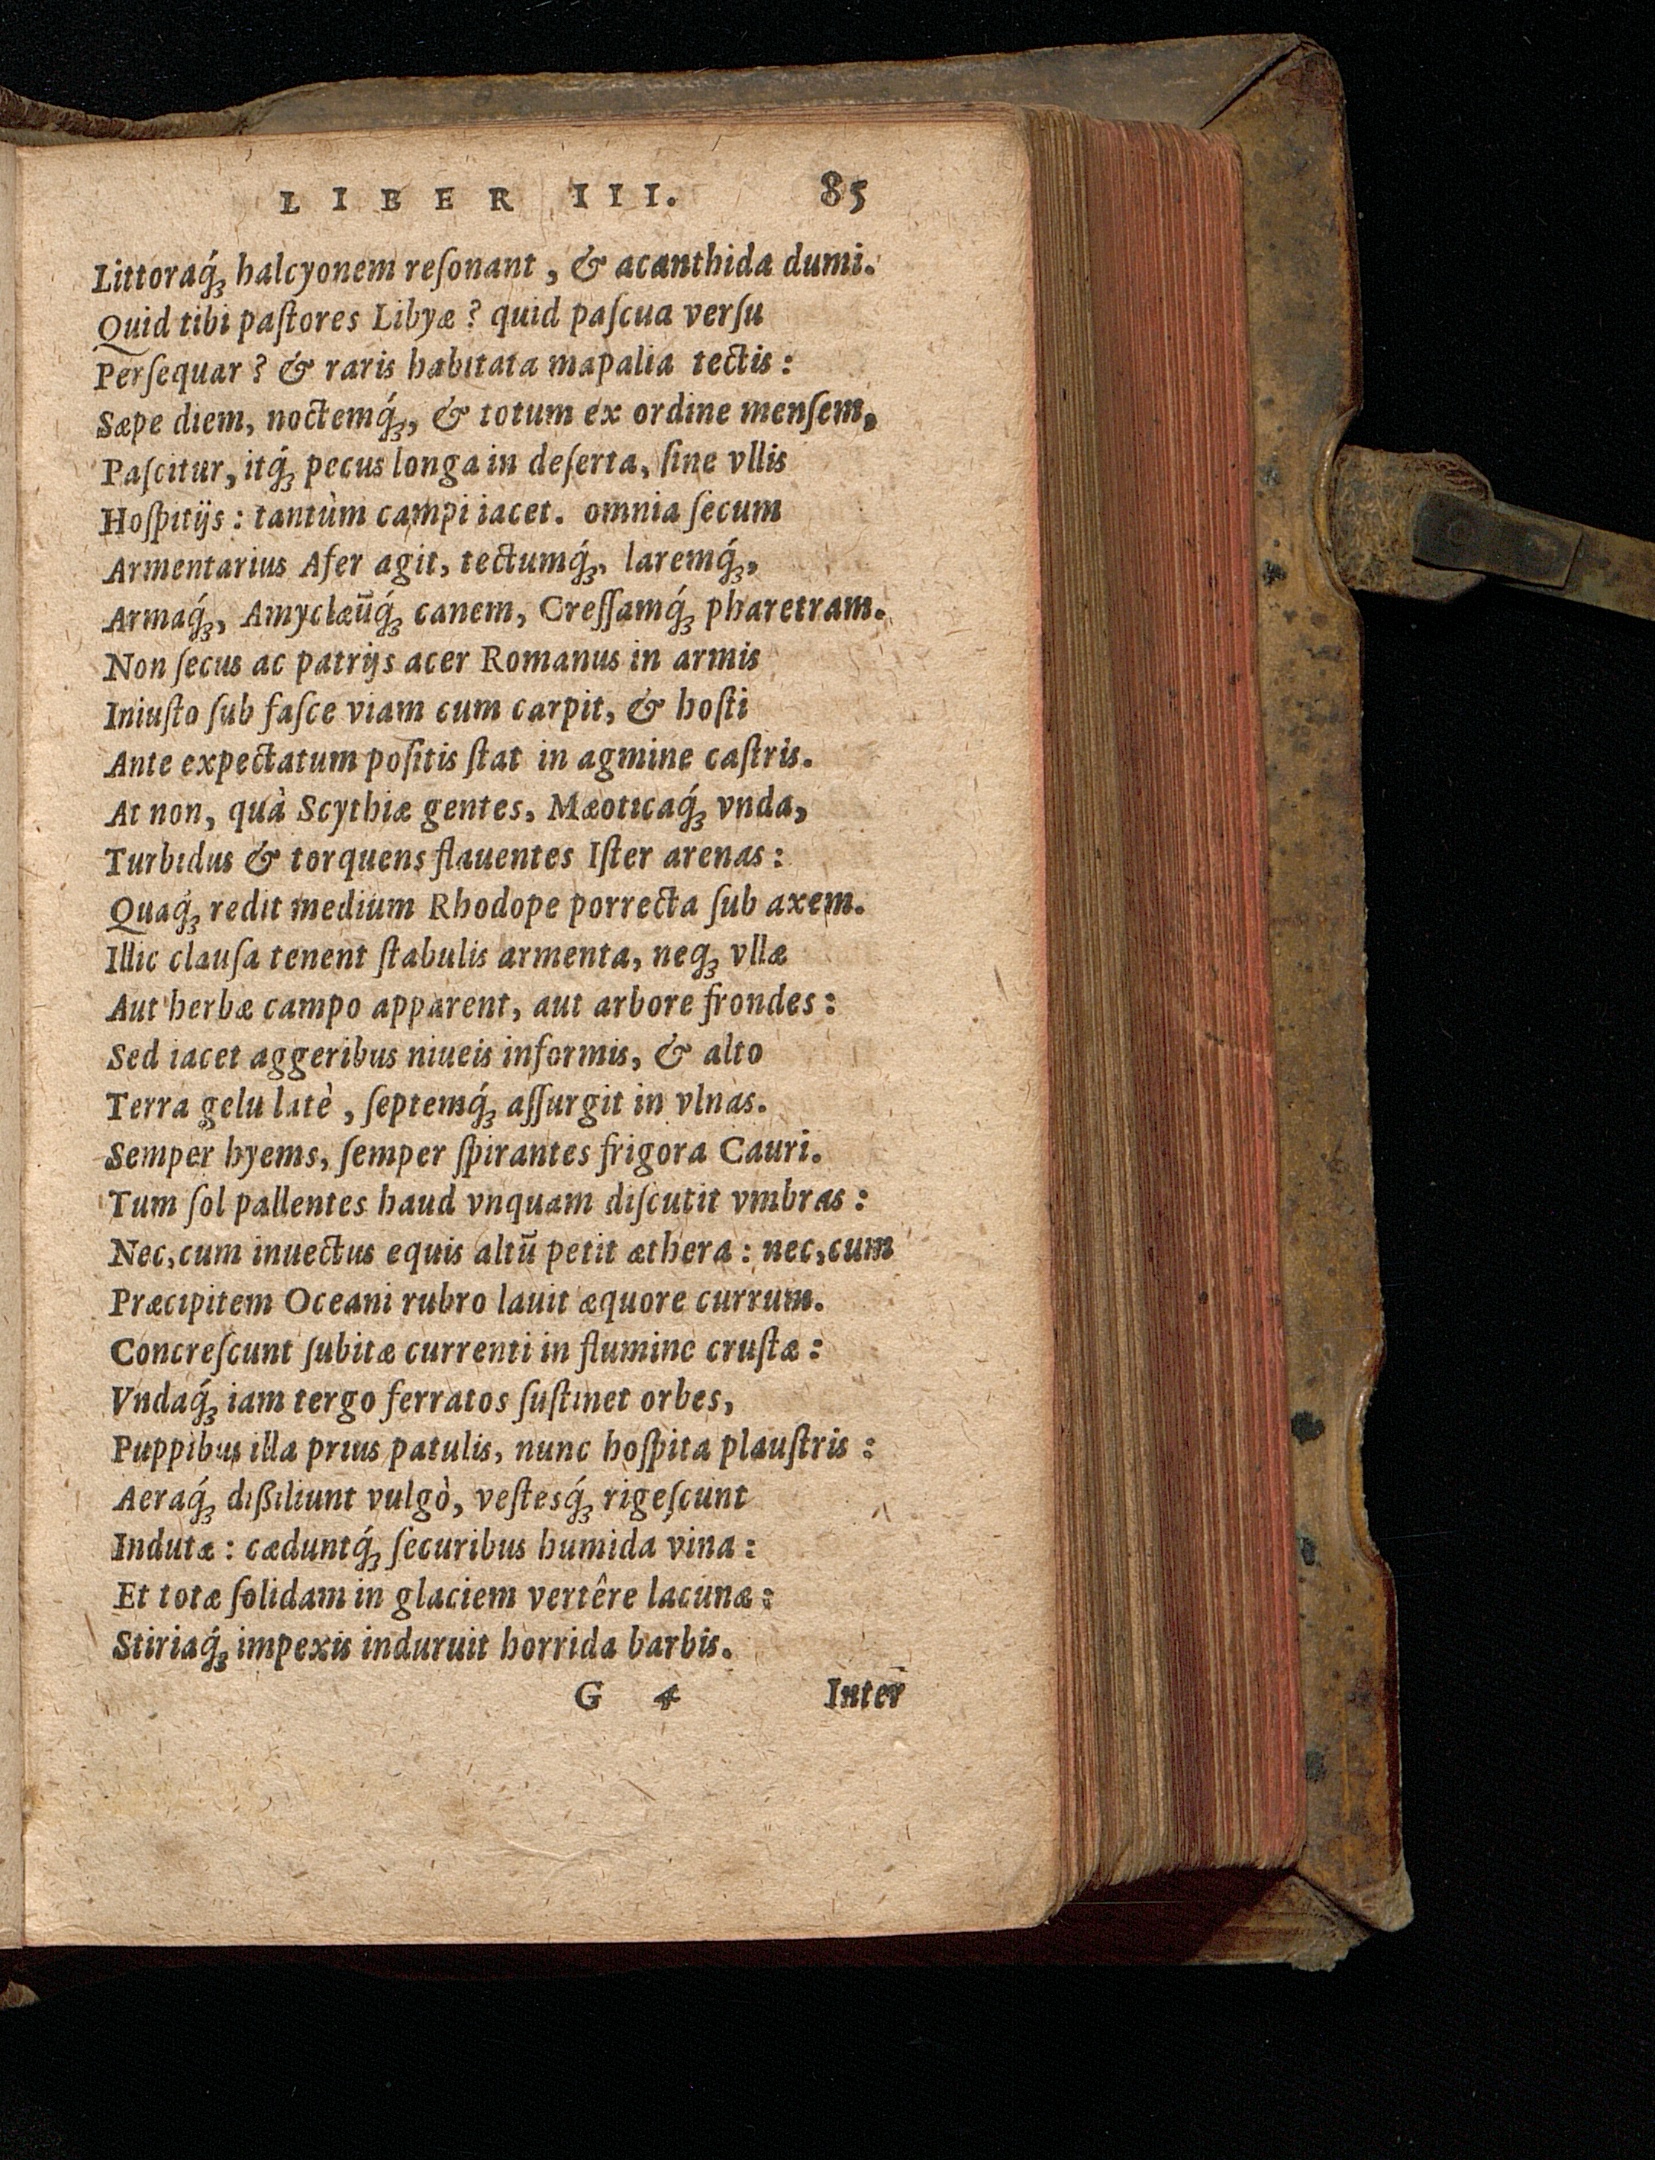 LIBER III. 85
Littoraq́ꝫ halcyonem reſonant, & acanthida dumi.
Quid tibi paſtores Libyæ? quid paſcua verſu
Perſequar? & raris habitata mapalia tectis:
Sæpe diem, noctemq́ꝫ, & totum ex ordine menſem,
Paſcitur, itq́ꝫ pecus longa in deſerta, ſine vllis
Hoſpitijs: tantùm campi iacet. omnia ſecum
Armentarius Afer agit, tectumq́ꝫ, laremq́ꝫ,
Armaq́ꝫ, Amyclæūq́ꝫ canem, Creſſamq́ꝫ pharetram.
Non ſecus ac patrijs acer Romanus in armis
Iniuſto ſub faſce viam cum carpit, & hoſti
Ante expectatum poſitis ſtat in agmine caſtris.
At non, quà Scythiæ gentes, Mæoticaq́ꝫ vnda,
Turbidus & torquens flauentes Iſter arenas:
Quaq́ꝫ redit medium Rhodope porrecta ſub axem.
Illic clauſa tenent ſtabulis armenta, neqꝫ vllæ
Aut herbæ campo apparent, aut arbore frondes:
Sed iacet aggeribus niueis informis, & alto
Terra gelu latè, ſeptemq́ꝫ aſſurgit in vlnas.
Semper hyems, ſemper ſpirantes frigora Cauri.
Tum ſol pallentes haud vnquam diſcutit vmbras:
Nec, cum inuectus equis altū petit æthera: nec, cum
Præcipitem Oceani rubro lauit æquore currum.
Concreſcunt ſubitæ currenti in flumine cruſtæ:
Vndaq́ꝫ iam tergo ferratos ſuſtinet orbes,
Puppibus illa prius patulis, nunc hoſpita plauſtris:
Aeraq́ꝫ dißiliunt vulgò, veſtesq́ꝫ rigeſcunt
Indutæ: cæduntq́ꝫ ſecuribus humida vina:
Et totæ ſolidam in glaciem vertêre lacunæ:
Stiriaq́ꝫ impexis induruit horrida barbis.
G 4 Inter